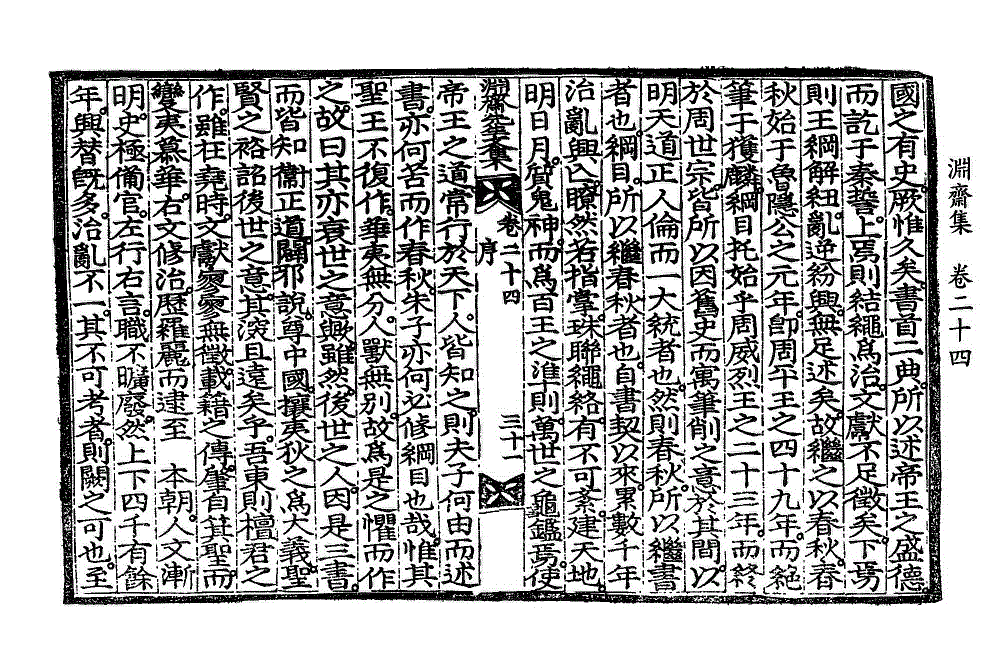 淵齋集　卷二十四
國之有史厥惟久矣書首二典所以述帝王之盛德
而訖于秦誓上焉則結繩爲治文獻不足徵矣下焉
則王綱解紐亂逆紛興無足述矣故繼之以春秋春
秋始于魯隱公之元年卽周平王之四十九年而絶
筆于獲麟綱目托始乎周威烈王之二十三年而終
於周世宗皆所以因舊史而寓筆削之意於其間以
明天道正人倫而一大統者也然則春秋所以繼書
者也綱目所以繼春秋者也自書契以來累數千年
治亂興亡瞭然若指掌珠聯繩絡有不可紊建天地
明日月質鬼神而爲百王之準則萬世之龜鑑焉使
淵齋先生文集　卷二十四　序　三十一
帝王之道常行於天下人皆知之則夫子何由而述
書亦何苦而作春秋朱子亦何必修綱目也哉惟其
聖王不復作華夷無分人獸無別故爲是之懼而作
之故曰其亦衰世之意歟雖然後世之人因是三書
而皆知衛正道闢邪說尊中國攘夷秋之爲大義聖
賢之裕詔後世之意其深且遠矣乎吾東則檀君之
作雖在堯時文獻寥寥無徵載籍之傳肇自箕聖而
變夷慕華右文修治歷羅麗而逮至　本朝人文漸
明史極備官左行右言職不曠廢然上下四千有餘
年興替旣多治亂不一其不可考者則闕之可也至